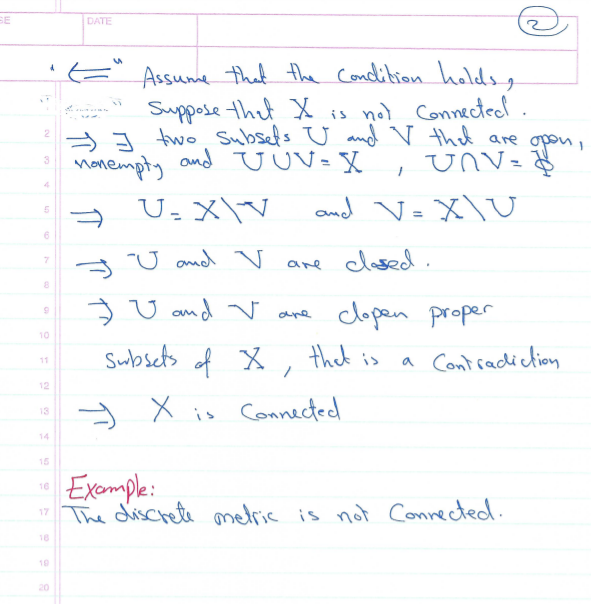 SE
DATE
2
"⇐" Assume that the Condition holds,
Suppose that X is not Connected.
2 ⇒ ∃ two subsets U and V that are open,
3 nonempty and U∪V = X , U∩V = ∅
4
5 ⇒ U = X\V and V = X\U
6
7 ⇒ U and V are closed.
8
9 ⇒ U and V are clopen proper
10
11 subsets of X, that is a Contradiction
12
13 ⇒ X is Connected
14
15
16 Example:
17 The discrete metric is not Connected.
18
19
20